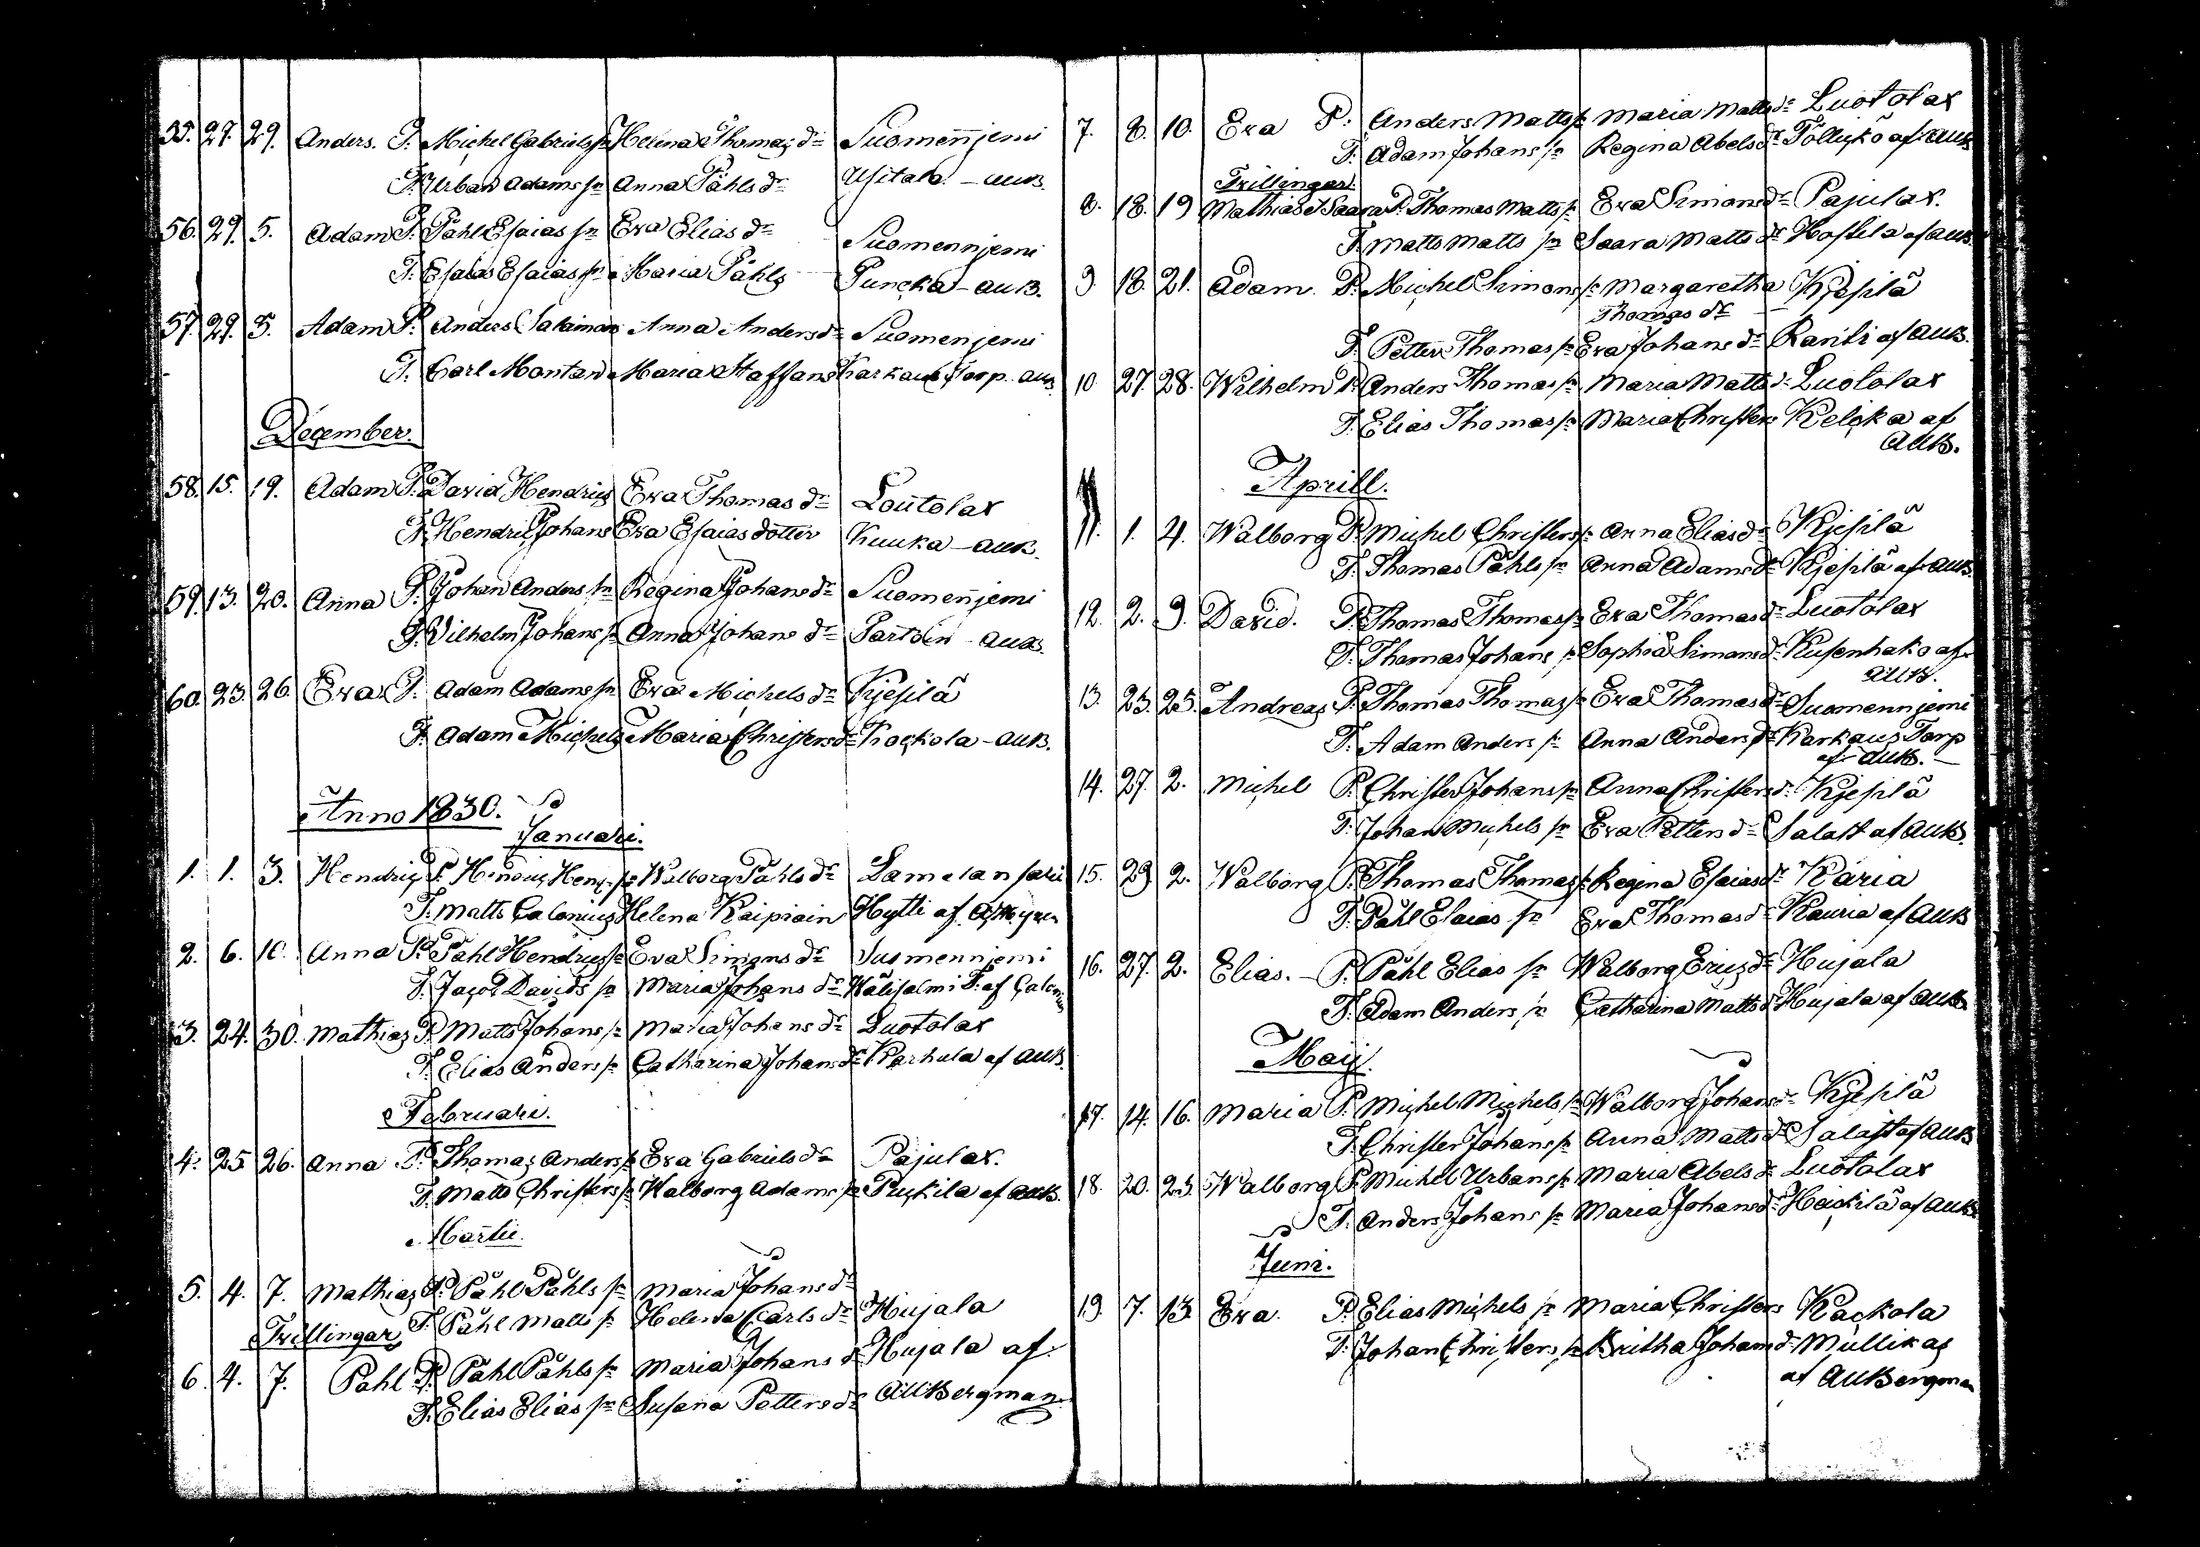 55. 27. 29. Anders. P. Michel Gabriels sn Helena Thomas dr Suomenjemi
F. Urban Adams sn Anna Påhls dr Usitalo - AuB.
56. 29. 5. Adam P. Påhl Esaias sn Eva Elias dr Suomennjemi
F. Esaias Esaias sn Maria Påhls Puncka - AuB.
57. 29. 5. Adam P. Anders Salaiman Anna Anders dr Suomenjemi
F. Carl Montan Maria Staffans Karkaus Torp AuB
December.
58. 15. 19. Adam P. David Hendrics Eva Thomas dr Loutolax
F. Hendric Johans Eva Esaias dotter Kuuka - AuB.
59. 13. 20. Anna P. Johan Anders sn Regina Johans dr Suomenjemi
F. Vilhelm Johans sn Anna Johans dr Partoin - AuB.
60. 23. 26. Eva P. Adam Adams sn Eva Michels dr Kjesilä
F. Adam Michels Maria Christers dr Kockola - AuB.
Anno 1830.
Januari.
1. 1. 3. Hendric P. Hendric Henr. sn Walborg Påhls dr Lamelansari
F. Matts Calonius Helena Kaipiain Hytti af
2. 6. 10. Anna P. Påhl Hendrics sn Eva Simons dr Susmennjemi
F. Jacob Davids sn Maria Johans dr Wälisalmi T. af Calonius
3. 24. 30. Mathias P. Matts Johans sn Maria Johans dr Luotolax
F. Elias Anders sn Catharina Johans dr Karhula af AuB.
Februari.
4. 25 26. Anna P. Thomas Anders sn Eva Gabriels dr Pajulax.
F. Matts Christers sn Walborg Adams sn Puckila af AuB.
Martii.
5. 4. 7. Mathias P. Påhl Påhls sn Maria Johans dr
F. Påhl Matts sn Helena Carls dr Hujala
Trillingar
6. 4. 7. Påhl P. Påhl Påhls sn Maria Johans dr Hujala af
F. Elias Elias sn Susana Petters dr AuBergman
7. 8. 10. Eva P. Anders Matts sn Maria Matts dr Luotolax
F. Adam Johans sn Regina Abels dr Pöllickö af AuB
Trillingar
8. 18. 19 Mathias & Saara P. Thomas Matts sn Eva Simons dr Pajulax.
F. Matts Matts sn Saara Matts dr Hossila af AuB.
9. 18. 21. Adam. P. Michel Simons sn Margaretha Kjesilä
Thomas dr
F. Petter Thomas sn Eva Johans dr Ranti af AuB.
10 27 28. Wilhelm P. Anders Thomas sn Maria Matts dr Luotolax
F. Elias Thomas sn Maria Christers Kelcka af
AuB.
Aprill.
11. 1. 4. Walborg P. Michel Christers sn Anna Elias dr Kjesilä
F. Thomas Påhls sn Anna Adams dr Kjesilä af AuB.
12. 2. 9. David. P. Thomas Thomas sn Eva Thomas dr Luotolax
F. Thomas Johans sn Sophia Simons dr Kusenhako af
AuB.
13. 23. 25. Andreas P. Thomas Thomas sn Eva Thomas dr Suomennjemi
F. Adam Anders sn Anna Anders dr Karkaus Torp
af AuB.
14. 27. 2. Michel P. Christer Johans sn Anna Christers dr Kjesilä
F. Johan Michels sn Eva Petters dr Salast af AuB.
15. 29. 2. Walborg P. Thomas Thomas sn Regina Esaias dr Käria
F. Påhl Elaias sn Eva Thomas dr Kauria af AuB
16. 27. 2. Elias. - P. Påhl Elias sn Walborg Erics dr Hujala
F. Adam Anders sn Catharina Matts dr Hujala af AuB.
Maij.
17. 14. 16. Maria P. Michel Michels sn Walborg Johans dr Kjesilä
F. Christer Johans sn Anna Matts dr Salast af AuB
18. 20. 23. Walborg P. Michel Urbans sn Maria Abels dr Luotolax
F. Anders Johans sn Maria Johans dr Heickilä af AuB.
Juni.
19. 7. 13. Eva. P. Elias Michels sn Maria Christers Kackola
F. Johan Christers sn Britha Johans dr Mullikas
af AuBergman